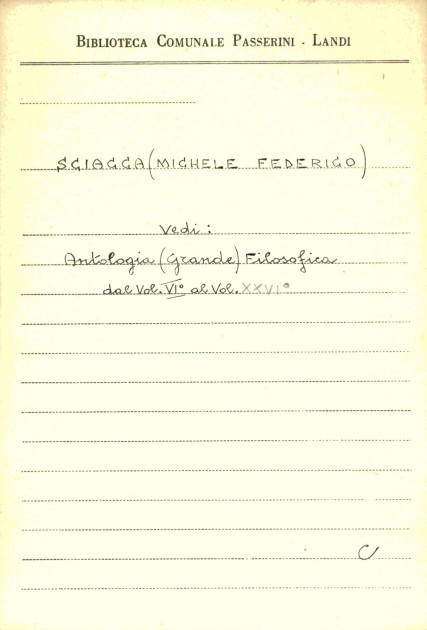 BIBLIOTECA COMUNALE PASSERINI - LANDI
SCIACCA (MICHELE FEDERICO)
Vedi:
Antologia (Grande) Filosofica
dal Vol. VIº al Vol. XXVIº
C